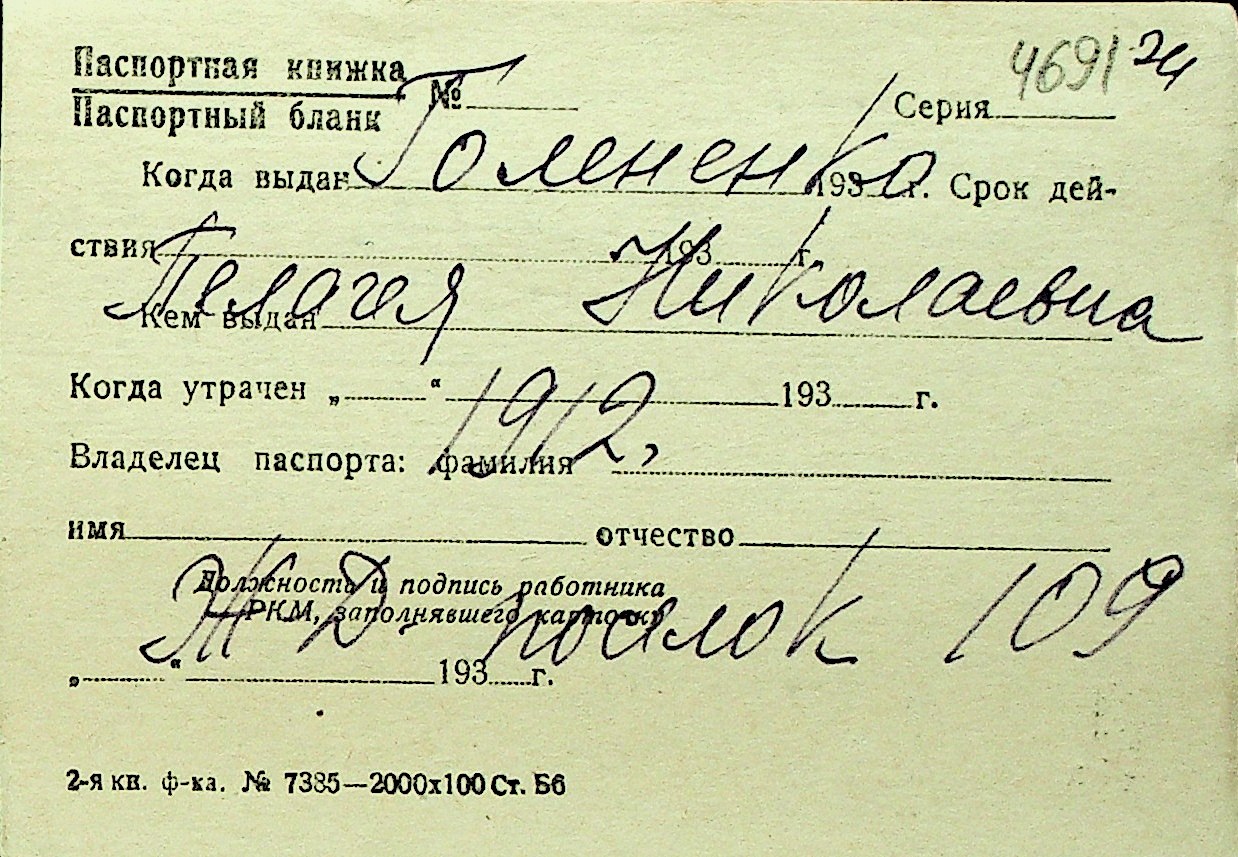 Паспортная книжка
Паспортный бланк № Серия 4691
Голененко
Когда выдан 193 г. Срок дей-
ствия 193 г.
Пелагея Николаевна
Кем выдан
Когда утрачен „ “ 193 г.
1912,
Владелец паспорта: фамилия
имя отчество
Должность и подпись работника
РКМ, заполнявшего карточку
Ж Д посьлок 109
„ “ 193 г.
2-я кн. ф-ка. № 7385—2000х100 Ст. Б6